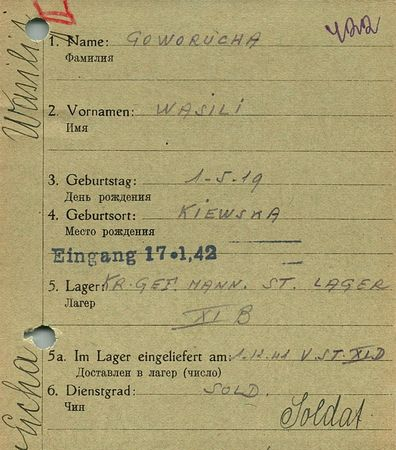 422
Wasilij
1. Name: GOWORUCHA
Фамилия
2. Vornamen: WASILI
Имя
3. Geburtstag: 1-5.19
День рождения
4. Geburtsort: KIEWSKA
Место рождения
Eingang 17.1,42
5. Lager: KR. GEF. MANN. ST. LAGER
Лагер
XI B
5a. Im Lager eingeliefert am: 1.11.41 V. ST. XI D
Доставлен в лагер (число)
6. Dienstgrad: SOLD.
Чин
Soldat
ucha